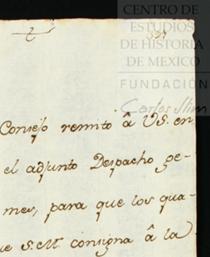 CENTRO DE
ESTUDIOS
DE HISTORIA
DE MEXICO
FUNDACIÓN
Carlos Slim
2
Consejo remito â VS. en
el adjunto Despacho ge-
mes, para que los qua-
ue S.M. consigna â la